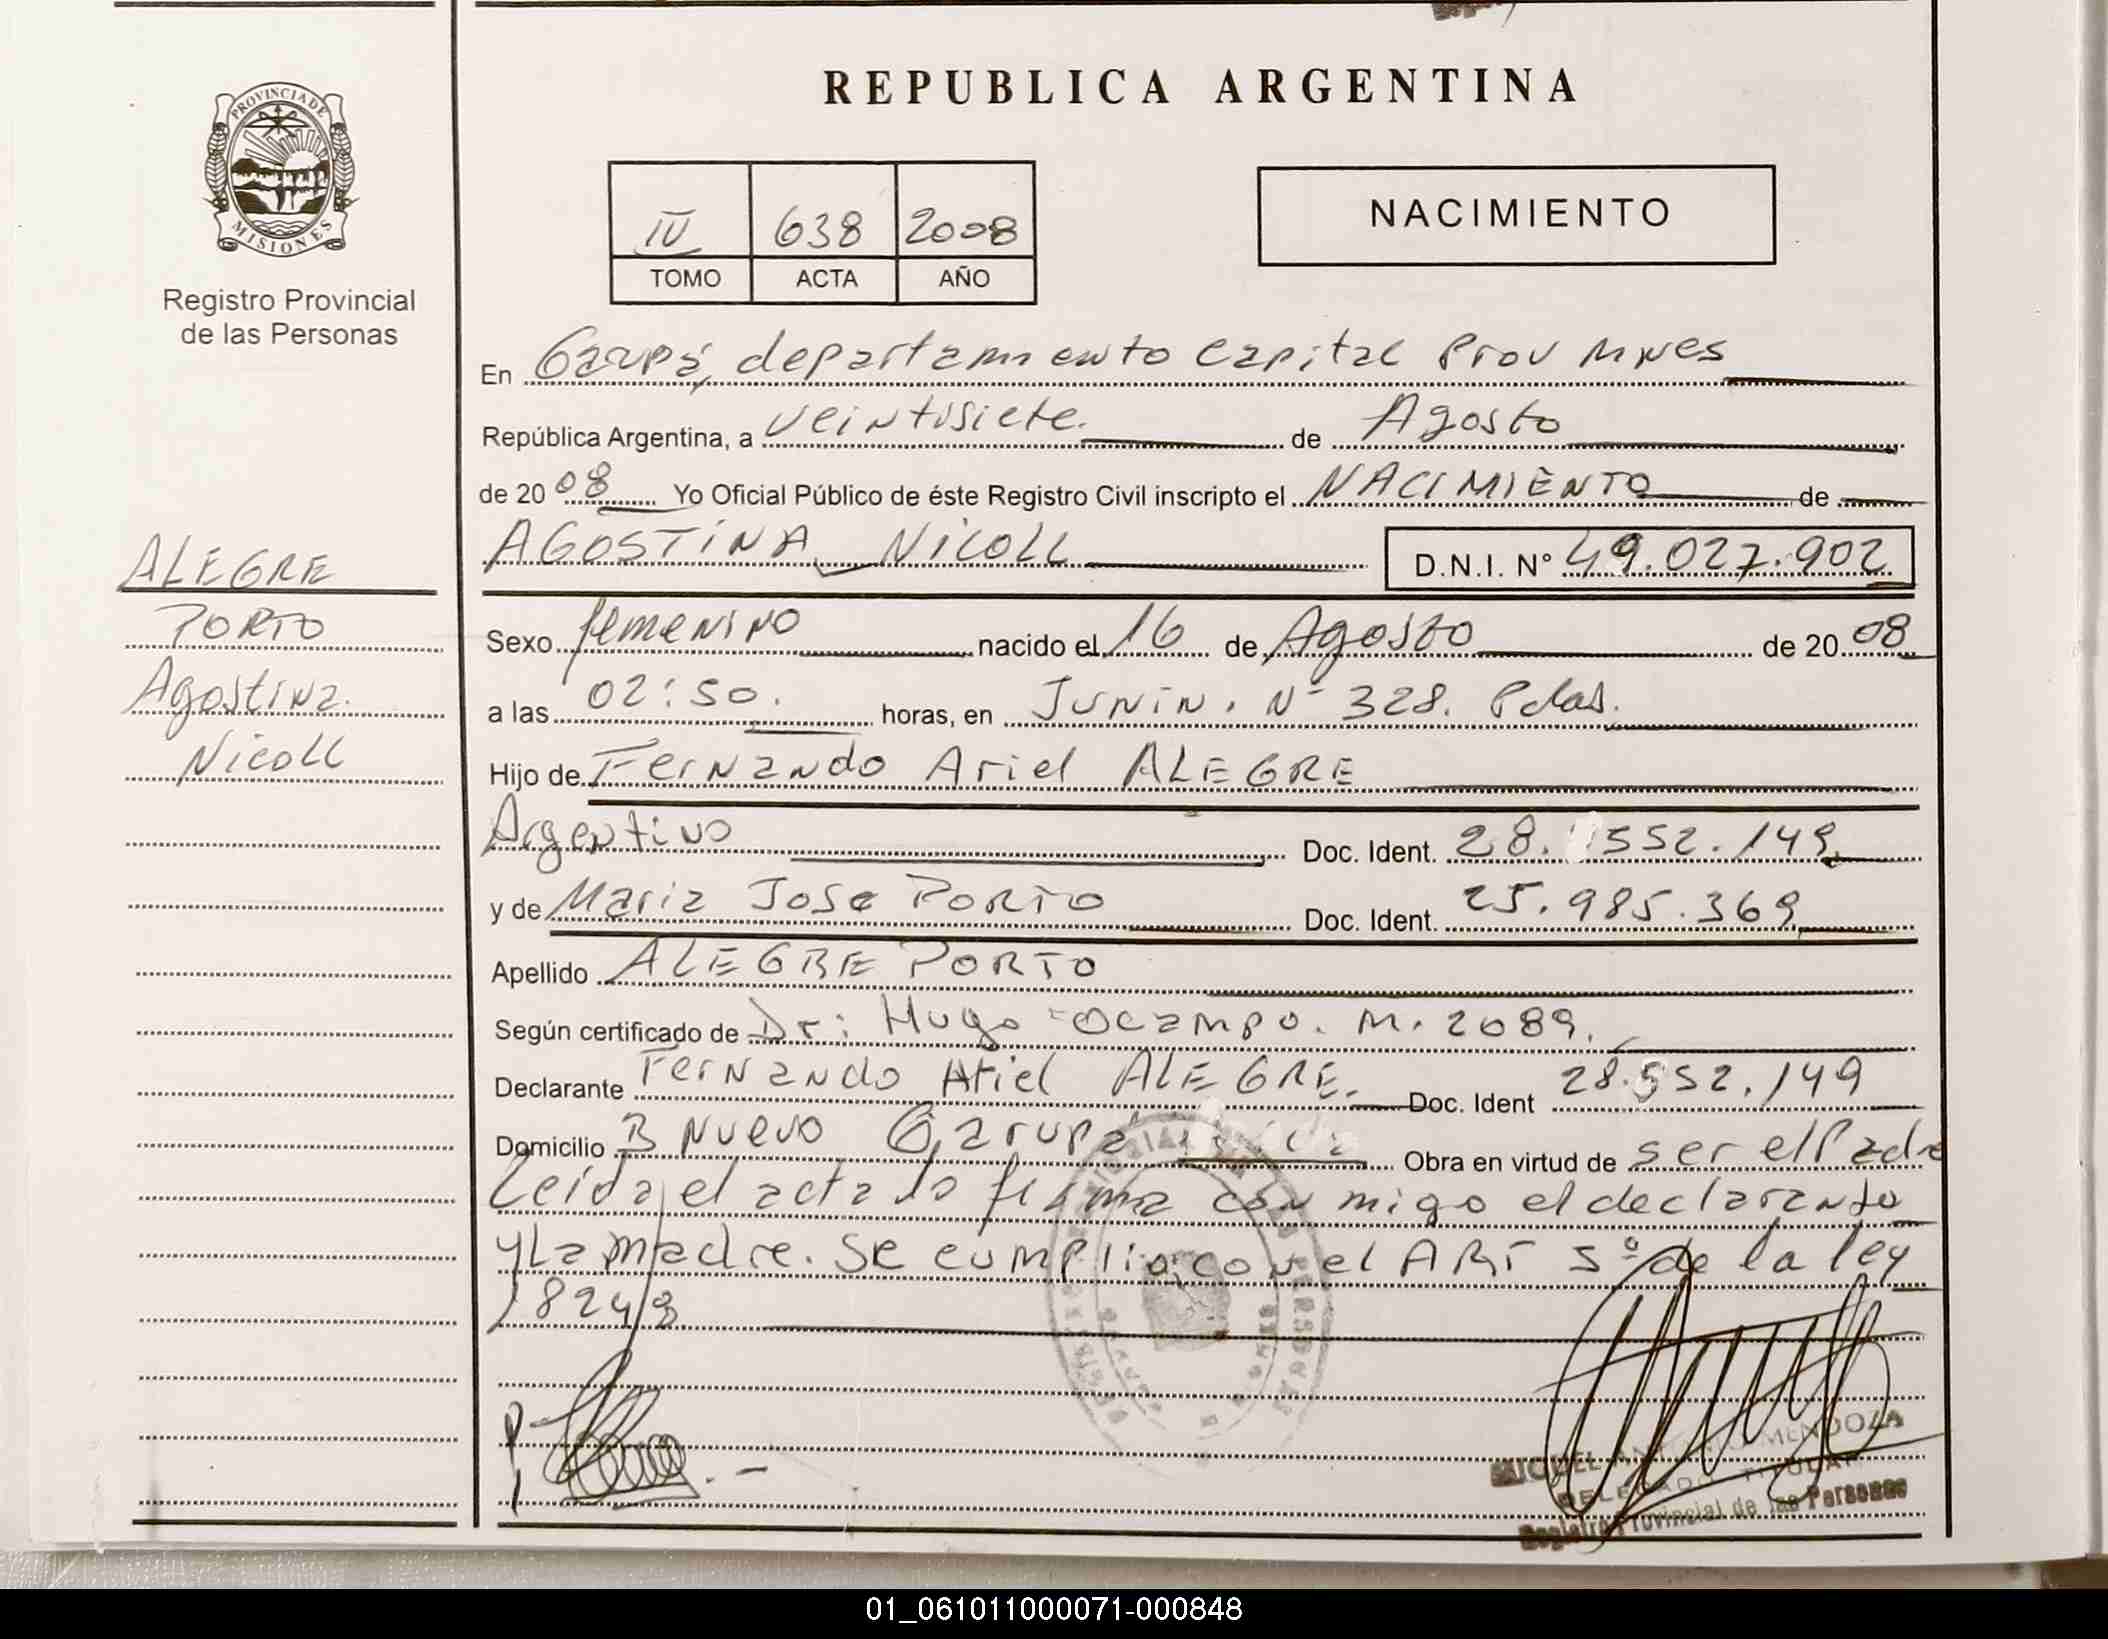 REPUBLICA ARGENTINA
PROVINCIA DE MISIONES
Registro Provincial
de las Personas
IV 638 2008
TOMO ACTA AÑO
NACIMIENTO
En Garupá, departamento Capital Prov Mnes
República Argentina, a veintisiete de Agosto
de 2008 Yo Oficial Público de éste Registro Civil inscripto el NACIMIENTO de
AGOSTINA NICOLL D.N.I. Nº 49.027.902
ALEGRE
PORTO
Agostina
Nicoll
Sexo femenino nacido el 16 de Agosto de 2008
a las 02:50. horas, en Junin. Nº 328. Pdas.
Hijo de Fernando Ariel ALEGRE
Argentino Doc. Ident. 28.552.149
y de Maria Jose PORTO Doc. Ident. 25.985.369
Apellido ALEGRE PORTO
Según certificado de Dr: Hugo Ocampo. M. 2089.
Declarante Fernando Ariel ALEGRE. Doc. Ident 28.552.149
Domicilio B Nuevo Garupá Obra en virtud de ser el Padre
Leida el acta la firma conmigo el declarante
y La madre. Se cumplio con el ART 5º de la ley
18248
MIGUEL ANTONIO MENDOZA
DELEGADO TITULAR
Registro Provincial de las Personas
01_061011000071-000848